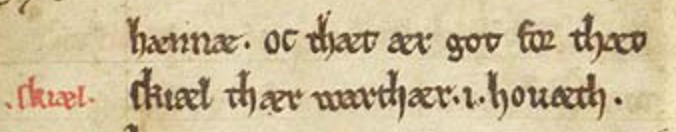 hænnæ. oc thæt ær got for thæn
.skiæl. skiæl thær warthær .i. houæth.